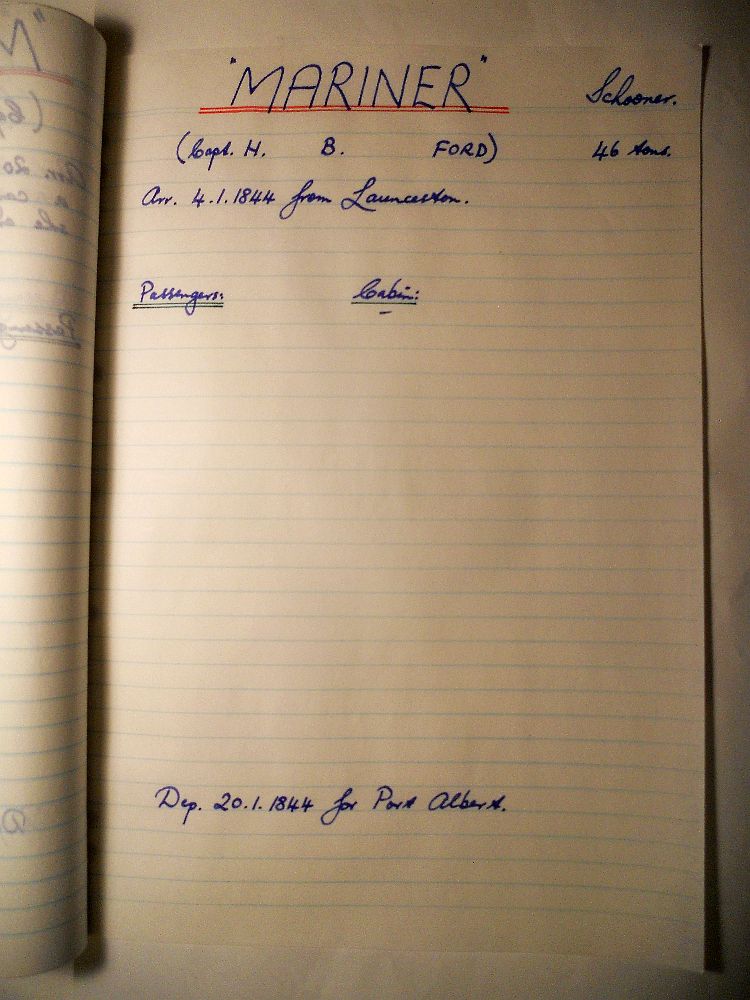 "MARINER" Schooner.
(Capt. H. B. FORD) 46 tons.
Arr. 4.1.1844 from Launceston.
Passengers: Cabin:
-
Dep. 20.1.1844 for Port Albert.